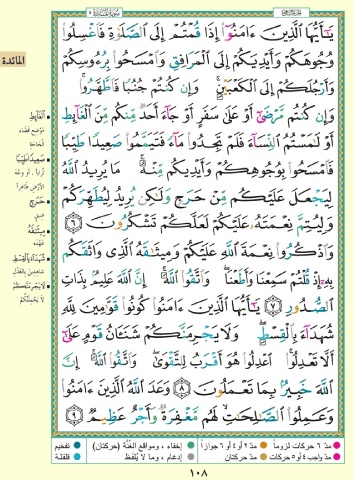 سُورَةُ المَائِدَةِ ٥
يَـٰٓأَيُّهَا ٱلَّذِينَ ءَامَنُوٓا۟ إِذَا قُمْتُمْ إِلَى ٱلصَّلَوٰةِ فَٱغْسِلُوا۟
وُجُوهَكُمْ وَأَيْدِيَكُمْ إِلَى ٱلْمَرَافِقِ وَٱمْسَحُوا۟ بِرُءُوسِكُمْ
وَأَرْجُلَكُمْ إِلَى ٱلْكَعْبَيْنِ ۚ وَإِن كُنتُمْ جُنُبًا فَٱطَّهَّرُوا۟ ۚ
وَإِن كُنتُم مَّرْضَىٰٓ أَوْ عَلَىٰ سَفَرٍ أَوْ جَآءَ أَحَدٌ مِّنكُم مِّنَ ٱلْغَآئِطِ
أَوْ لَـٰمَسْتُمُ ٱلنِّسَآءَ فَلَمْ تَجِدُوا۟ مَآءً فَتَيَمَّمُوا۟ صَعِيدًا طَيِّبًا
فَٱمْسَحُوا۟ بِوُجُوهِكُمْ وَأَيْدِيكُم مِّنْهُ ۚ مَا يُرِيدُ ٱللَّهُ
لِيَجْعَلَ عَلَيْكُم مِّنْ حَرَجٍ وَلَـٰكِن يُرِيدُ لِيُطَهِّرَكُمْ
وَلِيُتِمَّ نِعْمَتَهُۥ عَلَيْكُمْ لَعَلَّكُمْ تَشْكُرُونَ ٦
وَٱذْكُرُوا۟ نِعْمَةَ ٱللَّهِ عَلَيْكُمْ وَمِيثَـٰقَهُ ٱلَّذِى وَاثَقَكُم
بِهِۦٓ إِذْ قُلْتُمْ سَمِعْنَا وَأَطَعْنَا ۖ وَٱتَّقُوا۟ ٱللَّهَ ۚ إِنَّ ٱللَّهَ عَلِيمٌۢ بِذَاتِ
ٱلصُّدُورِ ٧ يَـٰٓأَيُّهَا ٱلَّذِينَ ءَامَنُوا۟ كُونُوا۟ قَوَّٰمِينَ لِلَّهِ
شُهَدَآءَ بِٱلْقِسْطِ ۖ وَلَا يَجْرِمَنَّكُمْ شَنَـَٔانُ قَوْمٍ عَلَىٰٓ
أَلَّا تَعْدِلُوا۟ ۚ ٱعْدِلُوا۟ هُوَ أَقْرَبُ لِلتَّقْوَىٰ ۖ وَٱتَّقُوا۟ ٱللَّهَ ۚ إِنَّ
ٱللَّهَ خَبِيرٌۢ بِمَا تَعْمَلُونَ ٨ وَعَدَ ٱللَّهُ ٱلَّذِينَ ءَامَنُوا۟
وَعَمِلُوا۟ ٱلصَّـٰلِحَـٰتِ ۙ لَهُم مَّغْفِرَةٌ وَأَجْرٌ عَظِيمٌ ٩
المائدة
الْغَآئِطِ
مَوْضِع قضاء
الحاجة
صَعِيدًا طَيِّبًا
حَرَجٍ
ضيق
مِيثَـٰقَهُ
عَهْده
شُهَدَآءَ بِالْقِسْطِ
شاهدين بالعَدْل
لَا يَجْرِمَنَّكُمْ
لا يَحْمِلَنَّكُمْ
مدّ ٦ حركات لزوماً
مدّ ٢ أو ٤ أو ٦ جوازاً
إخفاء، ومواقع الغُنَّة (حركتان)
تفخيم
مدّ واجب ٤ أو ٥ حركات
مدّ حركتان
إدغام، وما لا يُلفَظ
قلقلة
١٠٨